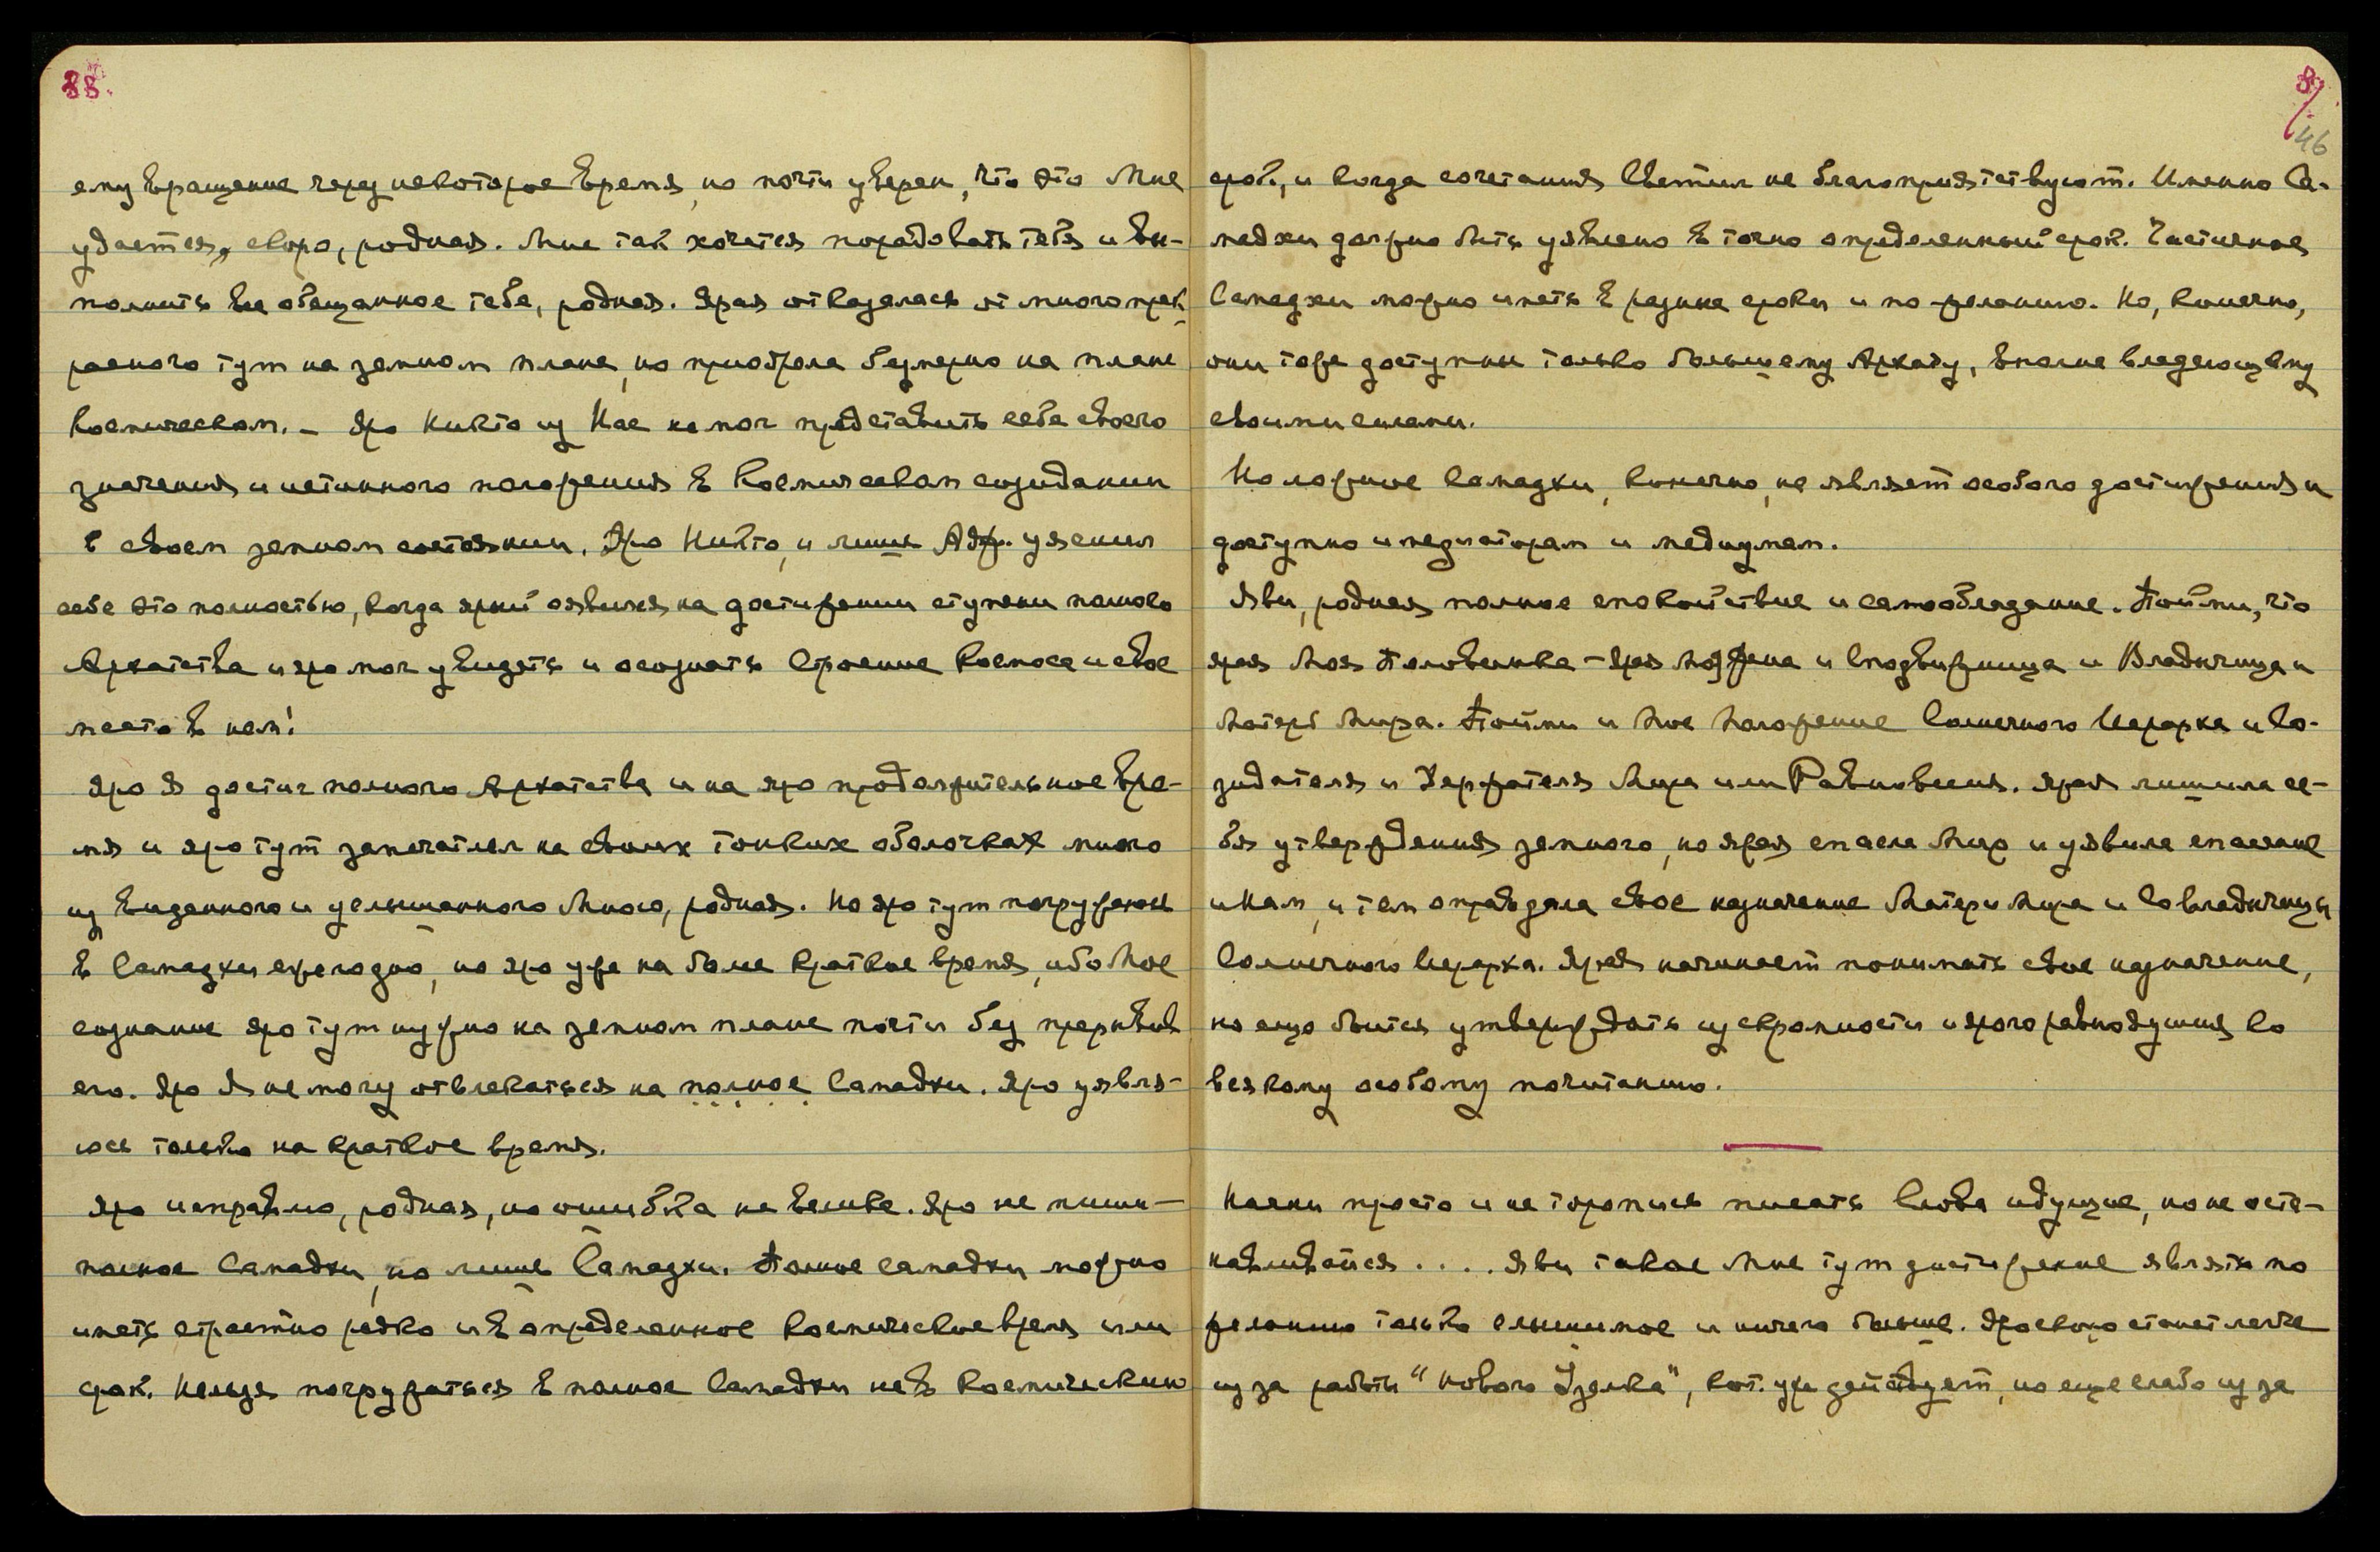 88.
ему вращение через некоторое время, но почти уверен, что это Мне
удастся, скоро, родная. Мне так хочется порадовать тебя и вы-
полнить все обещанное тебе, родная. Ярая отказалась от много прек-
расного тут на земном плане, но приобрела безмерно на плане
Космическом. – Яро Никто из Нас не мог представить себе своего
значения и истинного положения в Космическом созидании
в своем земном состоянии. Яро Никто, и лишь уяснил
себе это полностью, когда ярый оявился на достижении ступени полного
Архатства и яро мог увидать и осознать Строение Космоса и свое
место в нем!
Яро Я достиг полного Архатства и на яро продолжительное вре-
мя и яро тут запечатлел на своих тонких оболочках много
из виденного и услышанного Мною, родная. Но яро тут погружаюсь
в Самадхи ежегодно, но яро уже на более краткое время, ибо Мое
сознание яро тут нужно на земном плане почти без перерывов
его. Яро Я не могу отвлекаться на полное Самадхи. Яро уявля-
юсь только на краткое время.
Яро исправлю, родная, но ошибка не велика. Яро не пиши –
полное Самадхи, но лишь Самадхи. Полное самадхи можно
иметь страстно редко и в определенное космическое время или
срок. Нельзя погружаться в полное Самадхи не в Космический
8/
46
срок, и когда сочетания Светил не благоприятствуют. Именно Са-
мадхи должно быть уявлено в точно определенный срок. Частичное
Самадхи можно иметь в разные сроки и по желанию. Но, конечно,
они тоже доступны только большему Архату, вполне владеющему
своими силами.
Но ложное Самадхи, конечно, не являет особого достижения и
доступно и медиаторам и медиумам.
Яви, родная полное спокойствие и самообладание. Пойми, что
ярая Моя Половинка – ярая Моя Жена и Сподвижница и Владычица и
Матерь Мира. Пойми и Мое Положение Солнечного Иерарха и Со-
зидателя и Держателя Мира или Равновесия. Ярая лишила се-
бя утверждения земного, но ярая спасла Мир и уявила спасение
и Нам, и тем оправдала свое назначение Матери Мира и Совладычицы
Солнечного Иерарха. Ярая начинает понимать свое назначение,
но еще боится утверждать из скромности и ярого равнодушия ко
всякому особому почитанию.
Начни просто и не торопись писать Слова идущие, но не оста-
навливайся . . . . Яви такое Мне тут достижение являть по
желанию только слышимое и ничего больше. Яро скоро станет легче
из за работы "Нового Узелка", кот. уже действует, но еще слабо из за